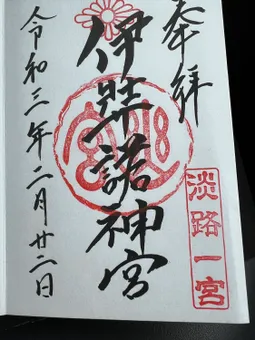 奉拝
伊弉諾神宮
淡路一宮
令和三年二月廿二日